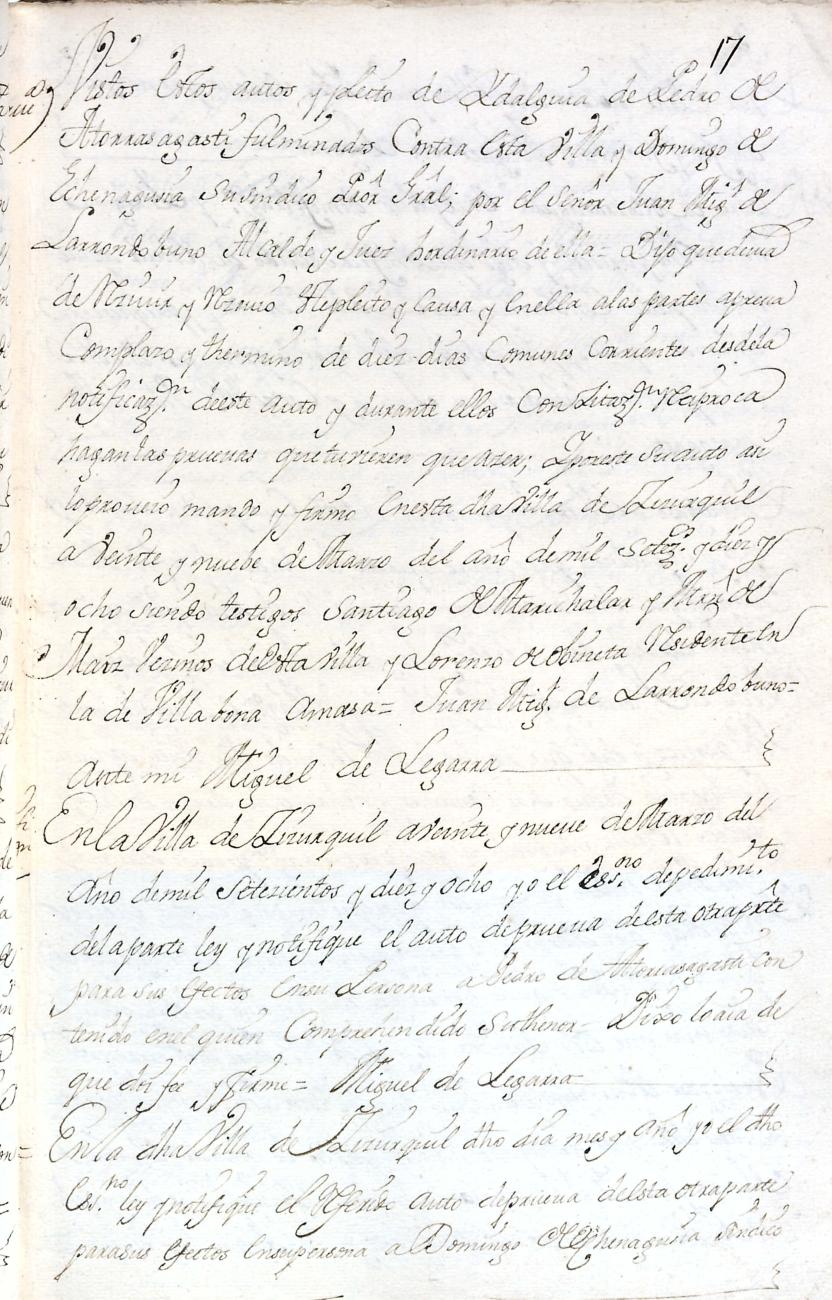 17
Vistos estos autos y pleito de Ydalguia de Pedro de
Atorrasagasti fulminados Contra esta Villa y Domingo de
Echenagusia su sindico Pror Gral; por el señor Juan Migl de
Larrondobuno Alcalde y Juez hordinario de ella = Dijo que devia
de y este pleito y Causa y en ella a las partes aprueva
Complazo y thermino de diez dias Comunes Corrientes desde la
notificazn. de este auto y durante ellos Con Citazn. Reciproca
hagan las pruevas que tuvieren que azer; Y por este su auto asi
lo proveio mando y firmo en esta dha Villa de Lizurquil
a Veinte y nuebe de Marzo del año de mil setezs. y diez y
ocho siendo testigos Santiago de Marichalar y Mrn de
Maiz Vezinos de esta Villa y Lorenzo de Obineta Residente en
la de Villabona Amasa = Juan Migl. de Larrondobuno =
Ante mi Miguel de Legarra
En la Villa de Lizurquil a veinte y nueve de Marzo del
Año de mil Setezientos y diez y ocho yo el Essno. de pedimto.
de la parte ley y notifique el auto de prueva de esta otra parte
para sus efectos en su Persona a Pedro de Atorrasagasti con
tenido en el quien Comprehendido su thenor = Dixo lo aia de
que doi fee y firme = Miguel de Legarra
En la dha Villa de Lizurquil dho dia mes y año yo el dho
Essno. ley y notifique el Referido auto de prueva de esta otra parte
para sus efectos en su persona a Domingo de Echenagusia Sindico